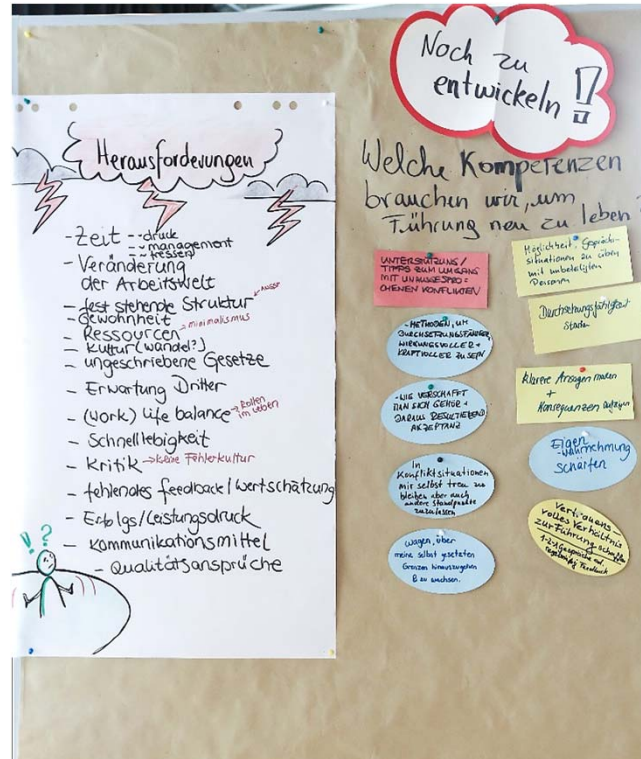 Herausforderungen
- Zeit -- druck
-- management
-- fresser
- Veränderung
der Arbeitswelt
- fest stehende Struktur
- Gewohnheit
- Ressourcen → minimalismus
- Kultur (wandel?)
- ungeschriebene Gesetze
- Erwartung Dritter
- (work) life balance → Rollen
im Leben
- Schnelllebigkeit
- Kritik → keine Fehlerkultur
- fehlendes feedback / wertschätzung
- Erfolgs/Leistungsdruck
- Kommunikationsmittel
- Qualitätsansprüche
!?
Noch zu
entwickeln !!
Welche Kompetenzen
brauchen wir, um
Führung neu zu leben?
UNTERSTÜTZUNG/
TIPPS ZUM UMGANG
MIT UNAUSGESPRO-
CHENEN KONFLIKTEN
- METHODEN, UM
DURCHSETZUNGSFÄHIGER,
WIRKUNGSVOLLER +
KRAFTVOLLER ZU SEIN
- WIE VERSCHAFFT
MAN SICH GEHÖR +
DARAUS RESULTIEREND
AKZEPTANZ
In
Konfliktsituationen
mir selbst treu zu
bleiben aber auch
andere Standpunkte
zuzulassen
wagen, über
meine selbst gesetzten
Grenzen hinauszugehen
& zu wachsen.
Möglichkeit Gesprächs-
situationen zu üben
mit unbeteiligten
Personen
Durchsetzungsfähigkeit
stärken
Klarere Ansagen machen
+
Konsequenzen aufzeigen
Eigen
-wahrnehmung
schärfen
Vertrauens
volles Verhältnis
zur Führung schaffen
1-2-1 Gespräche mit
regelmäßig Feedback